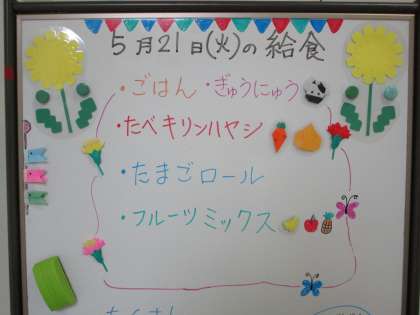 5月21日(火)の給食
・ごはん ・ぎゅうにゅう
・たべキリンハヤシ
・たまごロール
・フルーツミックス
たくさん